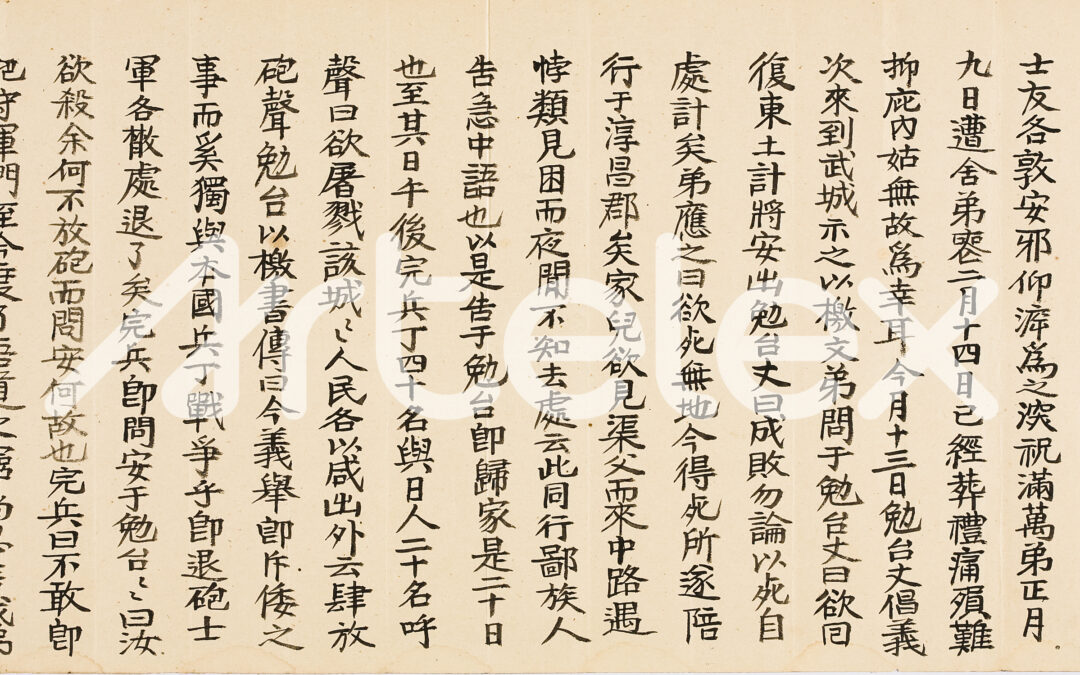 士友各敦安邪仰漭爲之溁祝滿萬弟正月
九日遭舍弟喪二月十四日已經葬禮痛殞難
抑庇內姑無故爲幸耳今月十三日勉台丈倡義
次來到武城示之以檄文弟問于勉台丈曰欲回
復東土計將安出勉台丈曰成敗勿論以死自
處計矣弟應之曰欲死無地今得死所遂陪
行于淳昌郡矣家兒欲見渠父而來中路遇
悖類見困而夜間不知去處云此同行鄙族人
告急中語也以是告于勉台卽歸家是二十日
也至其日午後完兵丁四十名與日人二十名呼
聲曰欲屠戮該城〻人民各以咸出外云肆放
砲聲勉台以檄書傳曰今義舉卽斥倭之
事而奚獨與本國兵丁戰爭乎卽退砲士
軍各撤處退了矣完兵卽問安于勉台〻曰汝
欲殺余何不放砲而問安何故也完兵曰不敢卽
把守軍門至今度乃吾道之
Artelex